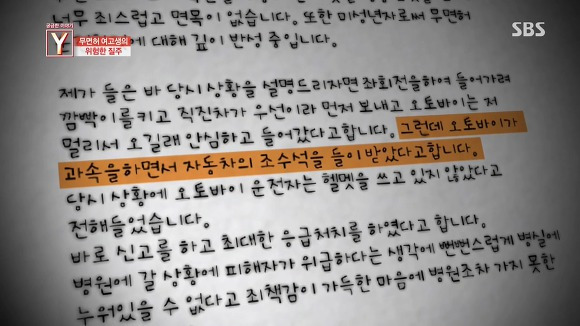 궁금한 이야기
Y
무면허 여고생의
위험한 질주
SBS
너무 죄스럽고 면목이 없습니다. 또한 미성년자로써 무면허
에 대해 깊이 반성 중입니다.
제가 들은 바 당시 상황을 설명드리자면 좌회전을하여 들어가려
깜빡이를키고 직진차가 우선이라 먼저 보내고 오토바이는 저
멀리서 오길래 안심하고 들어갔다고합니다. 그런데 오토바이가
과속을하면서 자동차의 조수석을 들이 받았다고합니다.
당시 상황에 오토바이 운전자는 헬멧을 쓰고 있지 않았다고
전해들었습니다.
바로 신고를 하고 최대한 응급처치를 하였다고 합니다.
병원에 갈 상황에 피해자가 위급하다는 생각에 뻔뻔스럽게 병실에
누워있을 수 없다고 죄책감이 가득한 마음에 병원조차 가지 못한